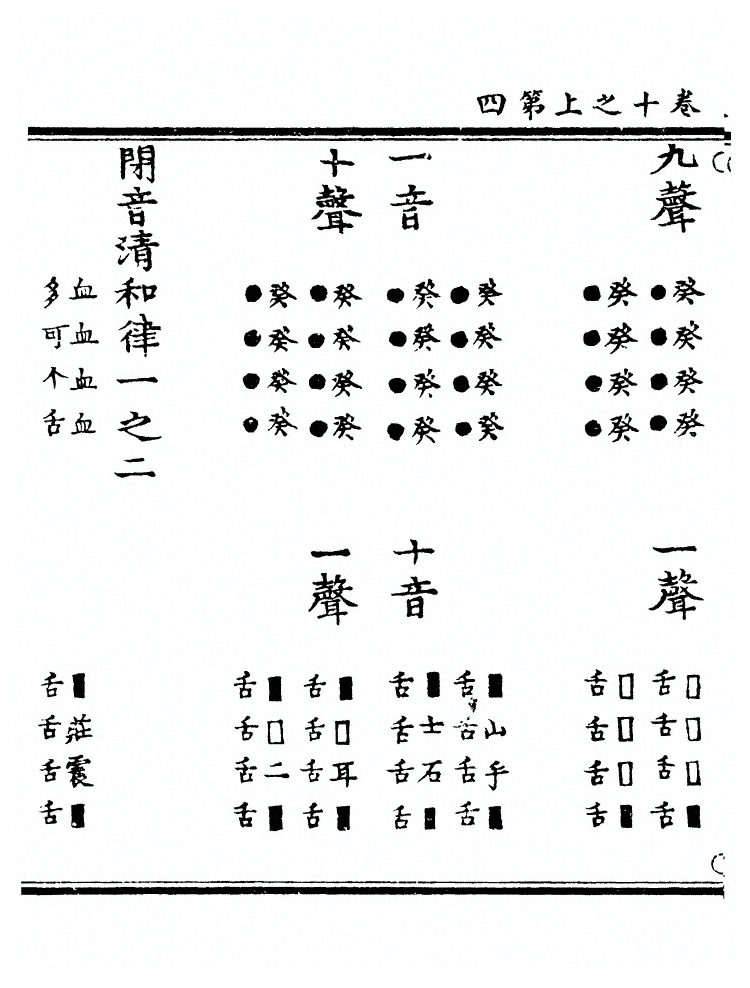 卷十之上第四
九聲 一聲
癸癸癸癸 □□□■
●●●● 舌舌舌舌
癸癸癸癸 □□□■
●●●● 舌舌舌舌
一音 十音
癸癸癸癸 ■山手■
●●●● 舌舌舌舌
癸癸癸癸 ■士石■
●●●● 舌舌舌舌
十聲 一聲
癸癸癸癸 ■□耳■
●●●● 舌舌舌舌
癸癸癸癸 ■□二■
●●●● 舌舌舌舌
閉音清和律一之二
血血血血 ■莊震■
多可个舌 舌舌舌舌